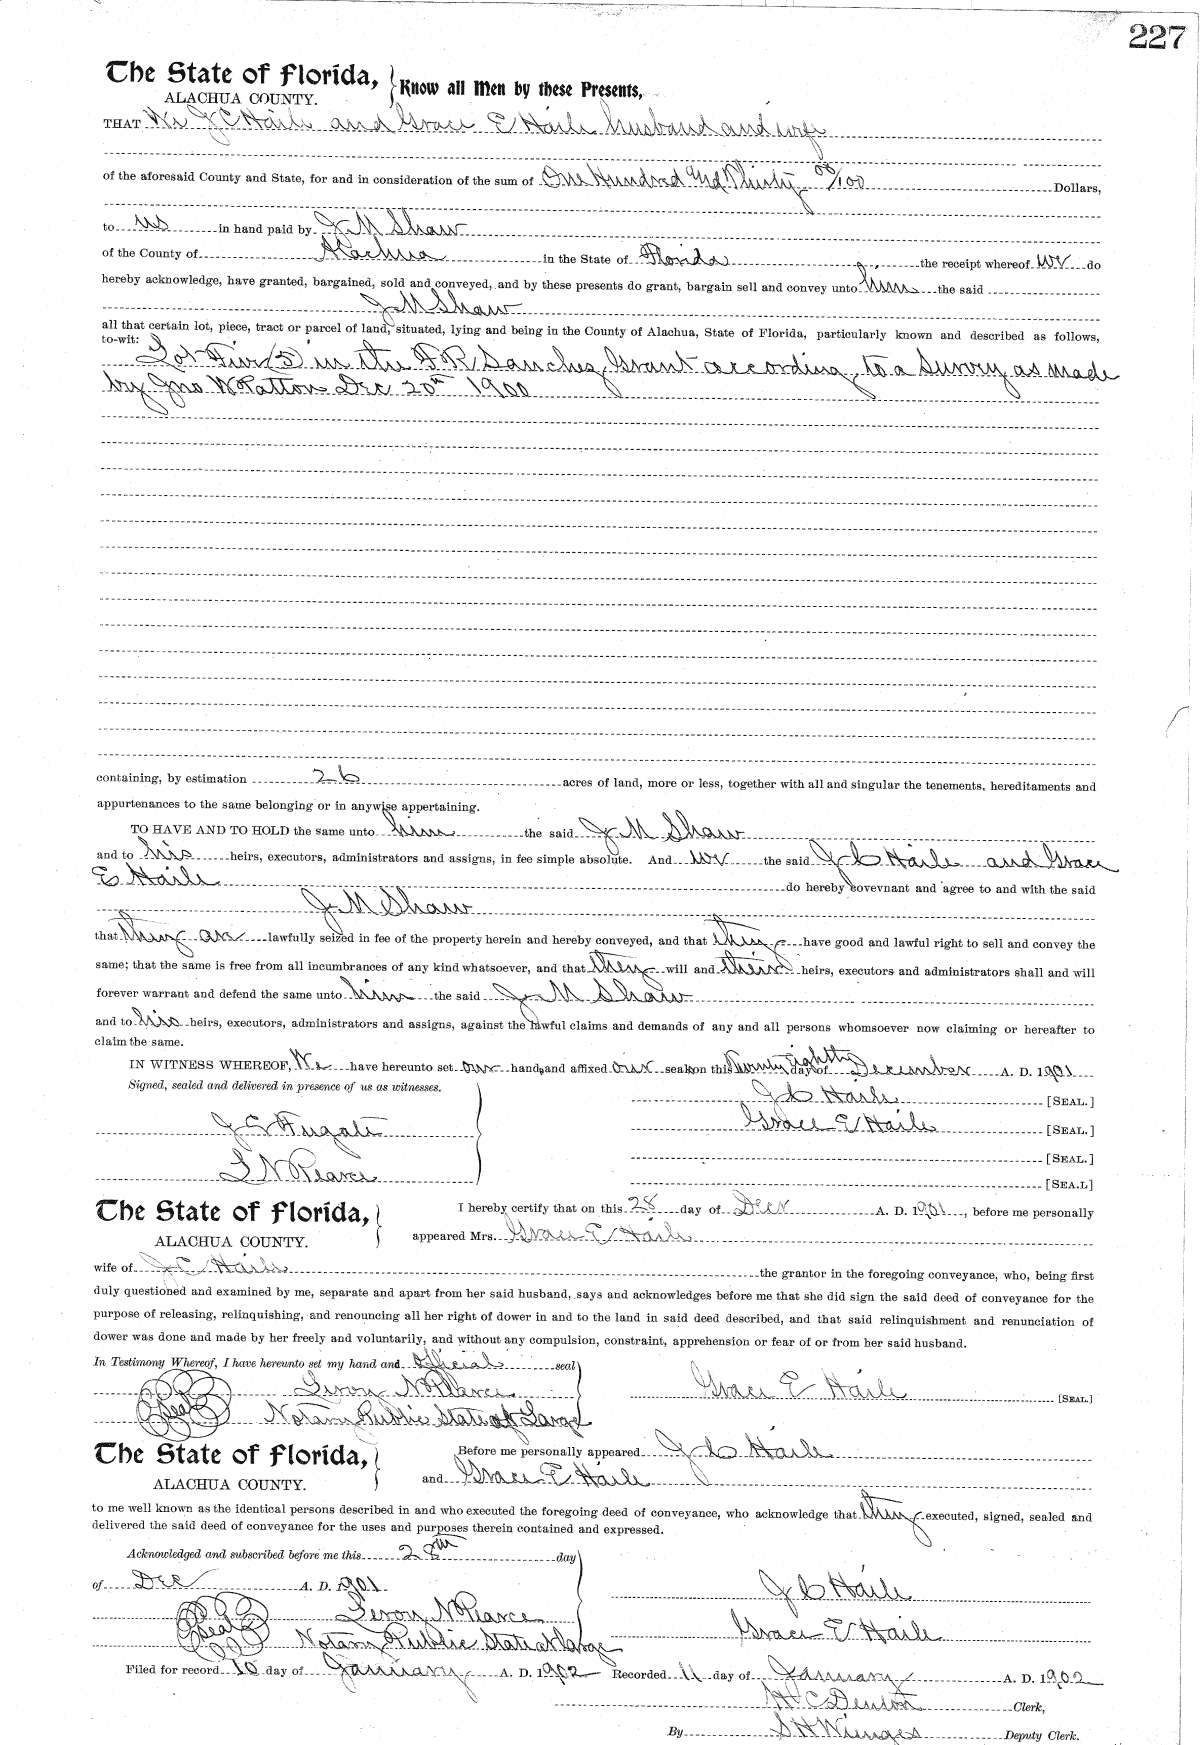 227
The State of Florida, Know all Men by these Presents,
ALACHUA COUNTY.
THAT We J C Haile and Grace E Haile husband and wife
of the aforesaid County and State, for and in consideration of the sum of One Hundred and Thirty 00/100 Dollars,
to us in hand paid by J M Shaw
of the County of Alachua in the State of Florida the receipt whereof we do
hereby acknowledge, have granted, bargained, sold and conveyed, and by these presents do grant, bargain sell and convey unto him the said
J M Shaw
all that certain lot, piece, tract or parcel of land, situated, lying and being in the County of Alachua, State of Florida, particularly known and described as follows,
to-wit: Lot Five (5) in the F R Sanchez Grant according to a Survey as made
by Jno W Patton Dec 20th 1900
containing, by estimation 26 acres of land, more or less, together with all and singular the tenements, hereditaments and
appurtenances to the same belonging or in anywise appertaining.
TO HAVE AND TO HOLD the same unto him the said J M Shaw
and to his heirs, executors, administrators and assigns, in fee simple absolute. And we the said J C Haile and Grace
E Haile do hereby covevnant and agree to and with the said
J M Shaw
that they are lawfully seized in fee of the property herein and hereby conveyed, and that they have good and lawful right to sell and convey the
same; that the same is free from all incumbrances of any kind whatsoever, and that they will and their heirs, executors and administrators shall and will
forever warrant and defend the same unto him the said J M Shaw
and to his heirs, executors, administrators and assigns, against the lawful claims and demands of any and all persons whomsoever now claiming or hereafter to
claim the same.
IN WITNESS WHEREOF, We have hereunto set our hands and affixed our seals on this Twenty eighth day of December A. D. 1901
Signed, sealed and delivered in presence of us as witnesses.
J C Haile [SEAL.]
J G Fugate Grace E Haile [SEAL.]
[SEAL.]
L N Pearce [SEA.L]
The State of Florida, I hereby certify that on this 28 day of Decr A. D. 1901, before me personally
ALACHUA COUNTY. appeared Mrs. Grace E Haile
wife of J C Haile the grantor in the foregoing conveyance, who, being first
duly questioned and examined by me, separate and apart from her said husband, says and acknowledges before me that she did sign the said deed of conveyance for the
purpose of releasing, relinquishing, and renouncing all her right of dower in and to the land in said deed described, and that said relinquishment and renunciation of
dower was done and made by her freely and voluntarily, and without any compulsion, constraint, apprehension or fear of or from her said husband.
In Testimony Whereof, I have hereunto set my hand and official seal
Leroy N Pearce Grace E Haile [SEAL.]
Seal Notary Public State at Large
The State of Florida, Before me personally appeared J C Haile
ALACHUA COUNTY. and Grace E Haile
to me well known as the identical persons described in and who executed the foregoing deed of conveyance, who acknowledge that they executed, signed, sealed and
delivered the said deed of conveyance for the uses and purposes therein contained and expressed.
Acknowledged and subscribed before me this 28th day
of Dec A. D. 1901 J C Haile
Seal Leroy N Pearce
Notary Public State at Large Grace E Haile
Filed for record 10 day of January A. D. 1902 Recorded 11 day of January A. D. 1902
H C Denton Clerk,
By S H Wienges Deputy Clerk.